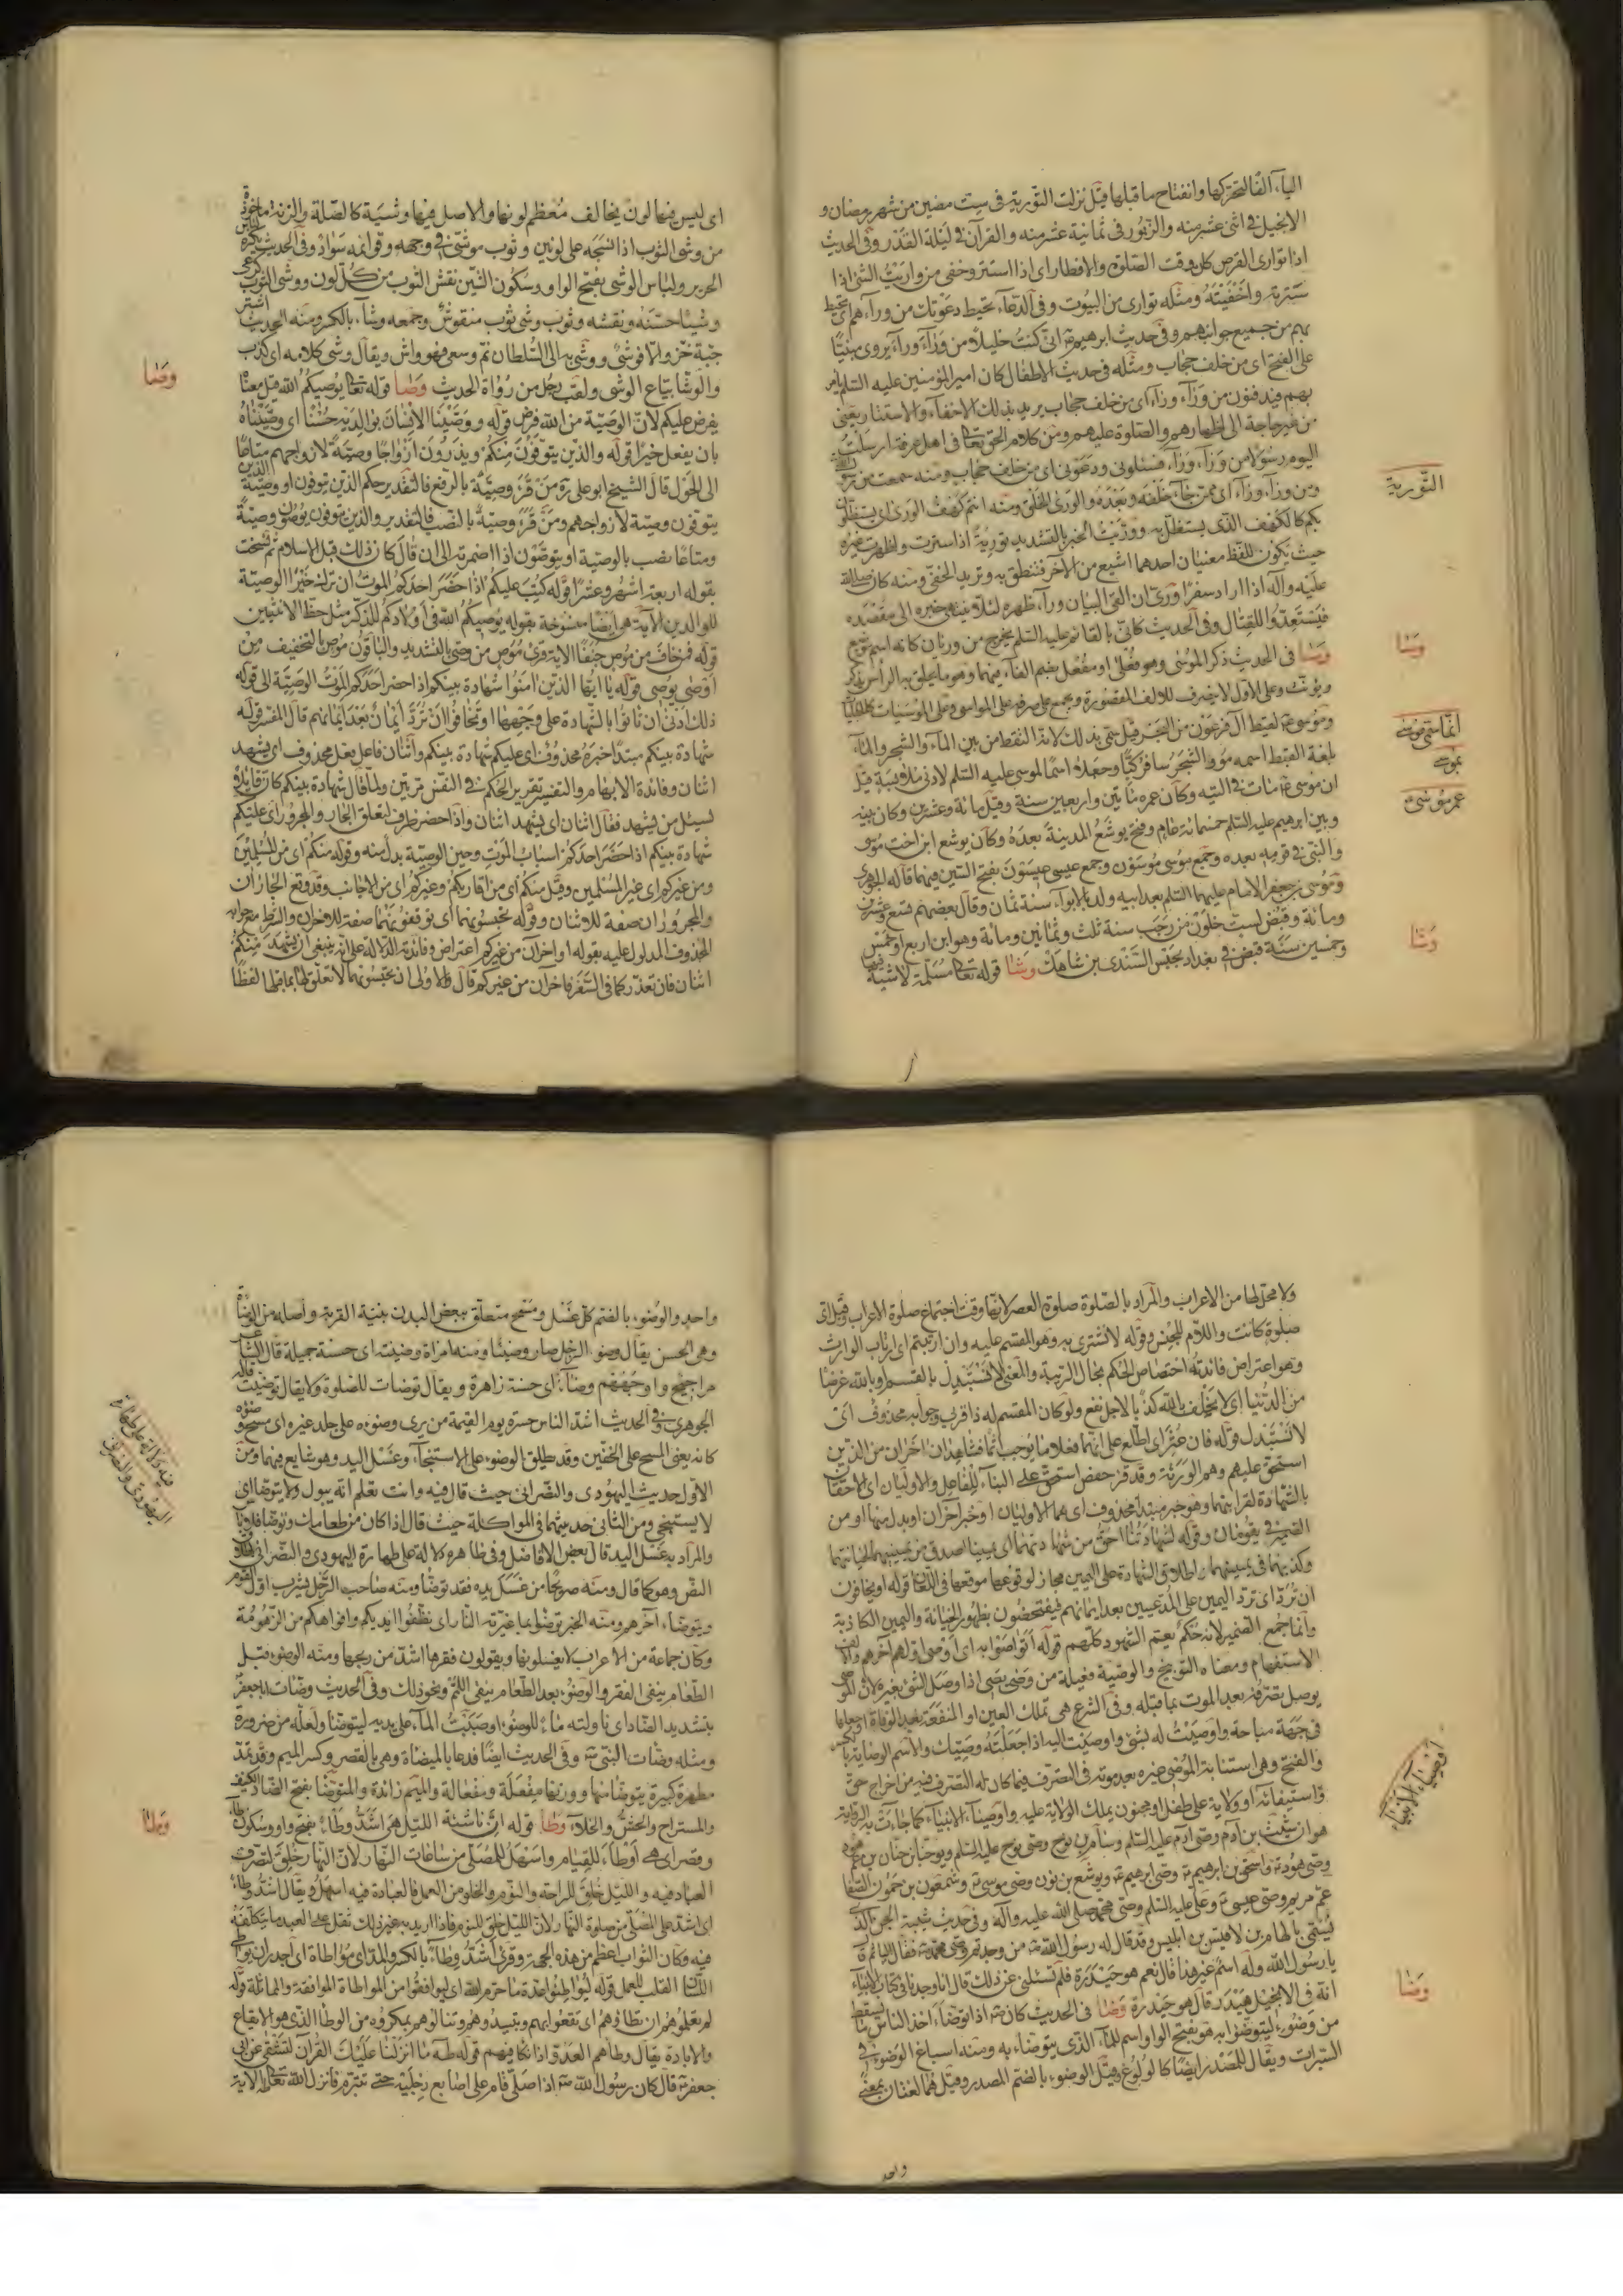 الياء الفا لتحركها وانفتاح ما قبلها قيل نزلت التورية فى ست مضين من شهر رمضان و
الانجيل فى اثنى عشر منه والزبور فى ثمانية عشر منه والقرآن فى ليلة القدر وفى الحديث
اذا توارى القرص كان وقت الصلوة والافطار اى اذا استتر وخفى من واريت الشئ اذا
سترته واخفيته ومثله توارى من البيوت وفى الدعاء تحيط دعوتك من وراءهم اى تحيط
بهم من جميع جوانبهم وفى حديث ابرهيم انى كنت خليلا من وراء وراء يروى مبنيا
على الفتح اى من خلف حجاب ومثله فى حديث الاطفال كان امير المؤمنين عليه السلم يامر
بهم فيدفنون من وراء وراء اى من خلف حجاب يريد بذلك الاخفاء والاستتار يعنى
من غير حاجة الى اظهارهم والصلوة عليهم ومن كلام الحق تعالى فى اهل عرفة ارسلت
اليهم رسولا من وراء وراء فسئلونى ودعونى اى من خلف حجاب ومنه سمعت من
ومن وراء وراء اى ممن جاء خلفه وبعده والورى الخلق ومنه انتم كهف الورى اى يستظلون
بكم كالكهف الذى يستظل به ووريت الخبر بالتشديد تورية اذا سترت واظهرت غيره
حيث يكون للفظ معنيان احدهما اشيع من الآخر فتنطق به وتريد الخفى ومنه كان صلى الله
عليه وآله اذا اراد سفرا ورى كان القى البيان وراء ظهره لئلا ينتهى خبره الى مقصده
فيستعدوا للقتال وفى الحديث كانى بالقائم عليه السلم يخرج من وريان كانه اسم موضع
وسا فى الحديث ذكر الموسى وهو فعلى او مفعل بضم الفاء فيهما وهو ما يحلق به الراس يذكر
ويؤنث وعلى الاول لا ينصرف للالف المقصورة ويجمع على صرفه على المواسى وعلى الموسيات كالحبليات
وموسى لقيط آل فرعون من البحر قيل سمى بذلك لانه التقط من بين الماء والشجر والماء
بلغة القبط اسمه مو والشجر سا فركبا وجعلا اسما لموسى عليه السلم لادنى ملابسة قيل
ان موسى مات فى التيه وكان عمره مأتين واربعين سنة وقيل مائة وعشرين وكان بينه
وبين ابرهيم عليه السلم خمسمائة عام وفتح يوشع المدينة بعده وكان يوشع ابن اخت موسى
والنبى فى قومه بعده وجمع موسى موسون وجمع عيسى عيسون بفتح السين فيهما قاله الجوهرى
وموسى بن جعفر الامام عليهما السلم بعد ابيه ولد بالابواء سنة ثمان وقال بعضهم تسع وعشرين
ومائة وقبض لست خلون من رجب سنة ثلث وثمانين ومائة وهو ابن اربع او خمس
وخمسين سنة قبض فى بغداد بحبس السندى بن شاهك وشا قوله تعالى مسلمة لا شية فيها
التورية
وسا
انما سمى موسى
بموسى
عمر موسى
وشا
اى ليس فيها لون يخالف معظم لونها والاصل فيها وشية كالصلة والزنة ماخوذة
من وشى الثوب اذا نسجه على لونين وثوب موشى فى وجهه وقوائمه سواد وفى الحديث يكره لباس
الحرير ولباس الوشى بفتح الواو وسكون الشين نقش الثوب من كل لون ووشى الثوب
وشيا حسنه ونقشه وثوب وشى ثوب منقوش وجمعه وشاء بالكسر ومنه الحديث اشتر
جبة خز والا فوشى ووشى به الى السلطان نم وسعى فهو واش ويقال وشى كلامه اى كذب
والوشا بياع الوشى ولقب رجل من رواة الحديث وصا قوله تعالى يوصيكم الله قيل معنا
يفرض عليكم لان الوصية من الله فرض قوله ووصينا الانسان بوالديه حسنا اى وصيناه
بان يفعل خيرا قوله والذين يتوفون منكم ويذرون ازواجا وصية لازواجهم متاعا
الى الحول قال الشيخ ابو على ره من قرء وصية بالرفع فالتقدير حكم الذين يتوفون او وصية الذين
يتوفون وصية لازواجهم ومن قرء وصية بالنصب فالتقدير والذين يتوفون يوصون وصية
ومتاعا نصب بالوصية او بتوصون اذا اضمرته الى ان قال كان ذلك قبل الاسلام ثم نسخت
بقوله اربعة اشهر وعشرا قوله كتب عليكم اذا حضر احدكم الموت ان ترك خيرا الوصية
للوالدين الآية هى ايضا منسوخة بقوله يوصيكم الله فى اولادكم للذكر مثل حظ الانثيين
قوله فمن خاف من موص جنفا الاية قرئ موص من وصى بالتشديد والباقون موص بالتخفيف من
اوصى يوصى قوله يا ايها الذين امنوا شهادة بينكم اذا حضر احدكم الموت الوصية الى قوله
ذلك ادنى ان ياتوا بالشهادة على وجهها او يخافوا ان ترد أيمان بعد أيمانهم قال المفسر قوله
شهادة بينكم مبتدا خبره محذوف اى عليكم شهادة بينكم واثنان فاعل فعل محذوف اى يشهد
اثنان وفائدة الابهام والتفسير تقرير الحكم فى النفس مرتين ولما قال شهادة بينكم كان قائلا
يسئل من يشهد فقال اثنان اى يشهد اثنان واذا حضر ظرف لتعلق الجار والمجرور اى عليكم
شهادة بينكم اذا حضر احدكم اسباب الموت وحين الوصية بدل منه وقوله منكم اى من المسلمين
ومن غيركم اى غير المسلمين وقيل منكم اى من اقاربكم وغيركم اى من الاجانب وقد وقع الجاران
والمجروران صفة للاثنان وقوله تحبسونهما اى توقفونهما صفة للاخران والشرط مع جوابه
المحذوف المدلول عليه بقوله او اخران من غيركم اعتراض وفائدته الدلالة على انه ينبغى ان يشهد منكم
اثنان فان تعذر كما فى السفر فآخران من غيركم قال والاولى ان تحبسونهما لا تعلق لها بما قبلها لفظا
وصا
ولا محل لها من الاعراب والمراد بالصلوة صلوة العصر لانها وقت اجتماع صلوة الاعراب وقيل اى
صلوة كانت واللام للجنس وقوله لا نشترى به وهو المقسم عليه وان ارتبتم اى ارتاب الوارث
وهو اعتراض فائدته اختصاص الحكم بحال الريبة والمعنى لا نستبدل بالقسم او بالله عرضا
من الدنيا اى لا نحلف بالله كذبا لاجل نفع ولو كان المقسم له ذا قربى وجوابه محذوف اى
لا نستبدل قوله فان عثر اى اطلع على انهما فعلا ما يوجب اثما فشاهدان اخران من الذين
استحق عليهم وهم الورثة وقد قرء حفص استحق على البناء للفاعل والاوليان اى الاحقان
بالشهادة لقرابتهما وهو خبر مبتدا محذوف اى هما الاوليان او خبر اخران او بدل منهما او من
الضمير فى يقومان وقوله لشهادتنا احق من شهادتهما اى يميننا اصدق من يمينهما لخيانتهما
وكذبهما فى يمينهما واطلاق الشهادة على اليمين مجاز لوقوعها موقعها فى اللعان قوله او يخافون
ان ترد اى ترد اليمين على المدعيين بعد ايمانهم فيفتضحون بظهور الخيانة واليمين الكاذبة
وانما جمع الضمير لانه حكم يعم الشهود كلهم قوله اتواصوا به اى اوصى اولهم آخرهم والالف
الاستفهام ومعناه التوبيخ والوصية فعيلة من وصى يصى اذا وصل الشئ بغيره لان الموصى
يوصل تصرفه بعد الموت بما قبله وفى الشرع هى تمليك العين او المنفعة بعد الوفاة او جعلها
فى جهة مباحة واوصيت له بشئ واوصيت اليه اذا جعلته وصيك والاسم الوصاية بالكسر
والفتح وهى استنابة الموصى غيره بعد موته فى التصرف فيما كان له التصرف فيه من اخراج حق
واستيفائه او ولاية على طفل او مجنون يملك الولاية عليه واوصياء الانبياء كما جاءت به الرواية
هو ان شيث بن آدم وصى آدم عليه السلم وسام بن نوح وصى نوح عليه السلم ويوحنا بن حنان بن عم هود
وصى هود واسحق بن ابرهيم وصى ابرهيم ويوشع بن نون وصى موسى وشمعون بن حمون الصفا
عم مريم وصى عيسى وعلى عليه السلم وصى محمد صلى الله عليه وآله وفى حديث شبية الجن الذى
يسمى بالهام بن لاقيس بن ابليس وقد قال له رسول الله من وجدتم وصى محمد فقال اليا
يا رسول الله وله اسم غير هذا قال نعم هو حيدرة فلم تسئلنى عن ذلك قال انا وجدنا فى كتاب الانبياء
انه فى الانجيل هيدار قال هو حيدرة وضا فى الحديث كان اذا توضاء اخذ الناس ما يسقط
من وضوءه ليتوضوا به هو بفتح الواو اسم للماء الذى يتوضاء به ومنه اسباغ الوضوء فى
السبرات ويقال للمصدر ايضا كالولوغ وقيل الوضوء بالضم المصدر وقيل هما لغتان بمعنى
واحد
اوصياء الانبياء
وضا
واحد والوضوء بالضم كل غسل ومسح متعلق ببعض البدن بنية القربة واصله من الوضاءة
وهى الحسن يقال وضوء الرجل صار وضيئا ومنه امراة وضيئة اى حسنة جميلة قال الشاعر
مراجيح واوجههم وضاء اى حسنة زاهرة ويقال توضات للصلوة ولا يقال توضيت قاله
الجوهرى وفى الحديث اشد الناس حسرة يوم القيمة من يرى وضوءه على جلد غيره اى مسح وضوء
كانه يعنى المسح على الخفين وقد يطلق الوضوء على الاستنجاء وغسل اليد وهو شايع فيهما ومن
الاول حديث اليهودى والنصرانى حيث قال فيه وانت تعلم انه يبول ولا يتوضا اى
لا يستنجى ومن الثانى حديثهما فى المواكلة حيث قال اذا كان من طعامك وتوضا فلا باس
والمراد به غسل اليد قال بعض الافاضل وفى ظاهره دلالة على طهارة اليهودى والنصرانى
النص وهو كما قال ومنه صريحا من غسل يده فقد توضا ومنه صاحب الرحل يشرب اول القوم
ويتوضاء آخرهم ومنه الخبر توضوا بما غيرته النار اى نظفوا ايديكم وافواهكم من الزهومة
وكان جماعة من الاعراب لا يغسلونها ويقولون فقرها اشد من ريحها ومنه الوضوء قبل
الطعام ينفى الفقر والوضوء بعد الطعام ينفى اللمم ونحو ذلك وفى الحديث وضات ابا جعفر
بتشديد الضاد اى ناولته ماء للوضوء او صببت الماء على يديه ليتوضا ولعله من ضرورة
ومثله وضات النبى وفى الحديث ايضا فدعا بالميضاة وهى بالقصر وكسر الميم وقد تمد
مطهرة كبيرة يتوضا منها ووزنها مفعلة ومفعالة والميم زائدة والمتوضا بفتح الضاد الكنيف
والمستراح والحش والخلاء وطا قوله ان ناشئة الليل هى اشد وطاء بفتح واو وسكون طاء
وقصر اى هى اوطاء للقيام واسهل للمصلى من ساعات النهار لان النهار خلق لتصرف
العباد فيه والليل خلق للراحة والنوم والخلو من العمل فالعبادة فيه اسهل ويقال اشد وطاء
اى اشد على المصلى من صلوة النهار لان الليل خلق للنوم فاذا اريد به غير ذلك ثقل على العبد ما يتكلفه
فيه وكان الثواب اعظم من هذه الجهة وقرئ اشد وطاء بالكسر والمد اى مواطاة اى اجدر ان يواطى
اللسان القلب للعمل قوله ليواطئوا عدة ما حرم الله اى ليوافقوا من المواطاة الموافقة والمماثلة قوله
لم تعلموهم ان تطاؤهم اى تقعوا بهم وتبيدوهم وتنالوهم بمكروه من الوطا الذى هو الايقاع
والابادة يقال وطاهم العدو اذا نكا فيهم قوله طه ما انزلنا عليك القرآن لتشقى عن ابى
جعفر قال كان رسول الله اذا صلى قام على اصابع رجليه حتى تورم فانزل الله تعالى الاية
فيه دلالة على طهارة
اليهودى والنصرانى
وطا